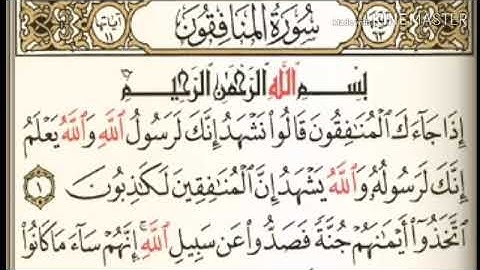 آياتها ١١ سُورَةُ المُنَافِقُون ٦٣
KINEMASTER
بِسْمِ ٱللَّهِ ٱلرَّحْمَٰنِ ٱلرَّحِيمِ
إِذَا جَآءَكَ ٱلْمُنَٰفِقُونَ قَالُوا۟ نَشْهَدُ إِنَّكَ لَرَسُولُ ٱللَّهِ وَٱللَّهُ يَعْلَمُ
إِنَّكَ لَرَسُولُهُۥ وَٱللَّهُ يَشْهَدُ إِنَّ ٱلْمُنَٰفِقِينَ لَكَٰذِبُونَ ١
ٱتَّخَذُوٓا۟ أَيْمَٰنَهُمْ جُنَّةً فَصَدُّوا۟ عَن سَبِيلِ ٱللَّهِ ۚ إِنَّهُمْ سَآءَ مَا كَانُوا۟